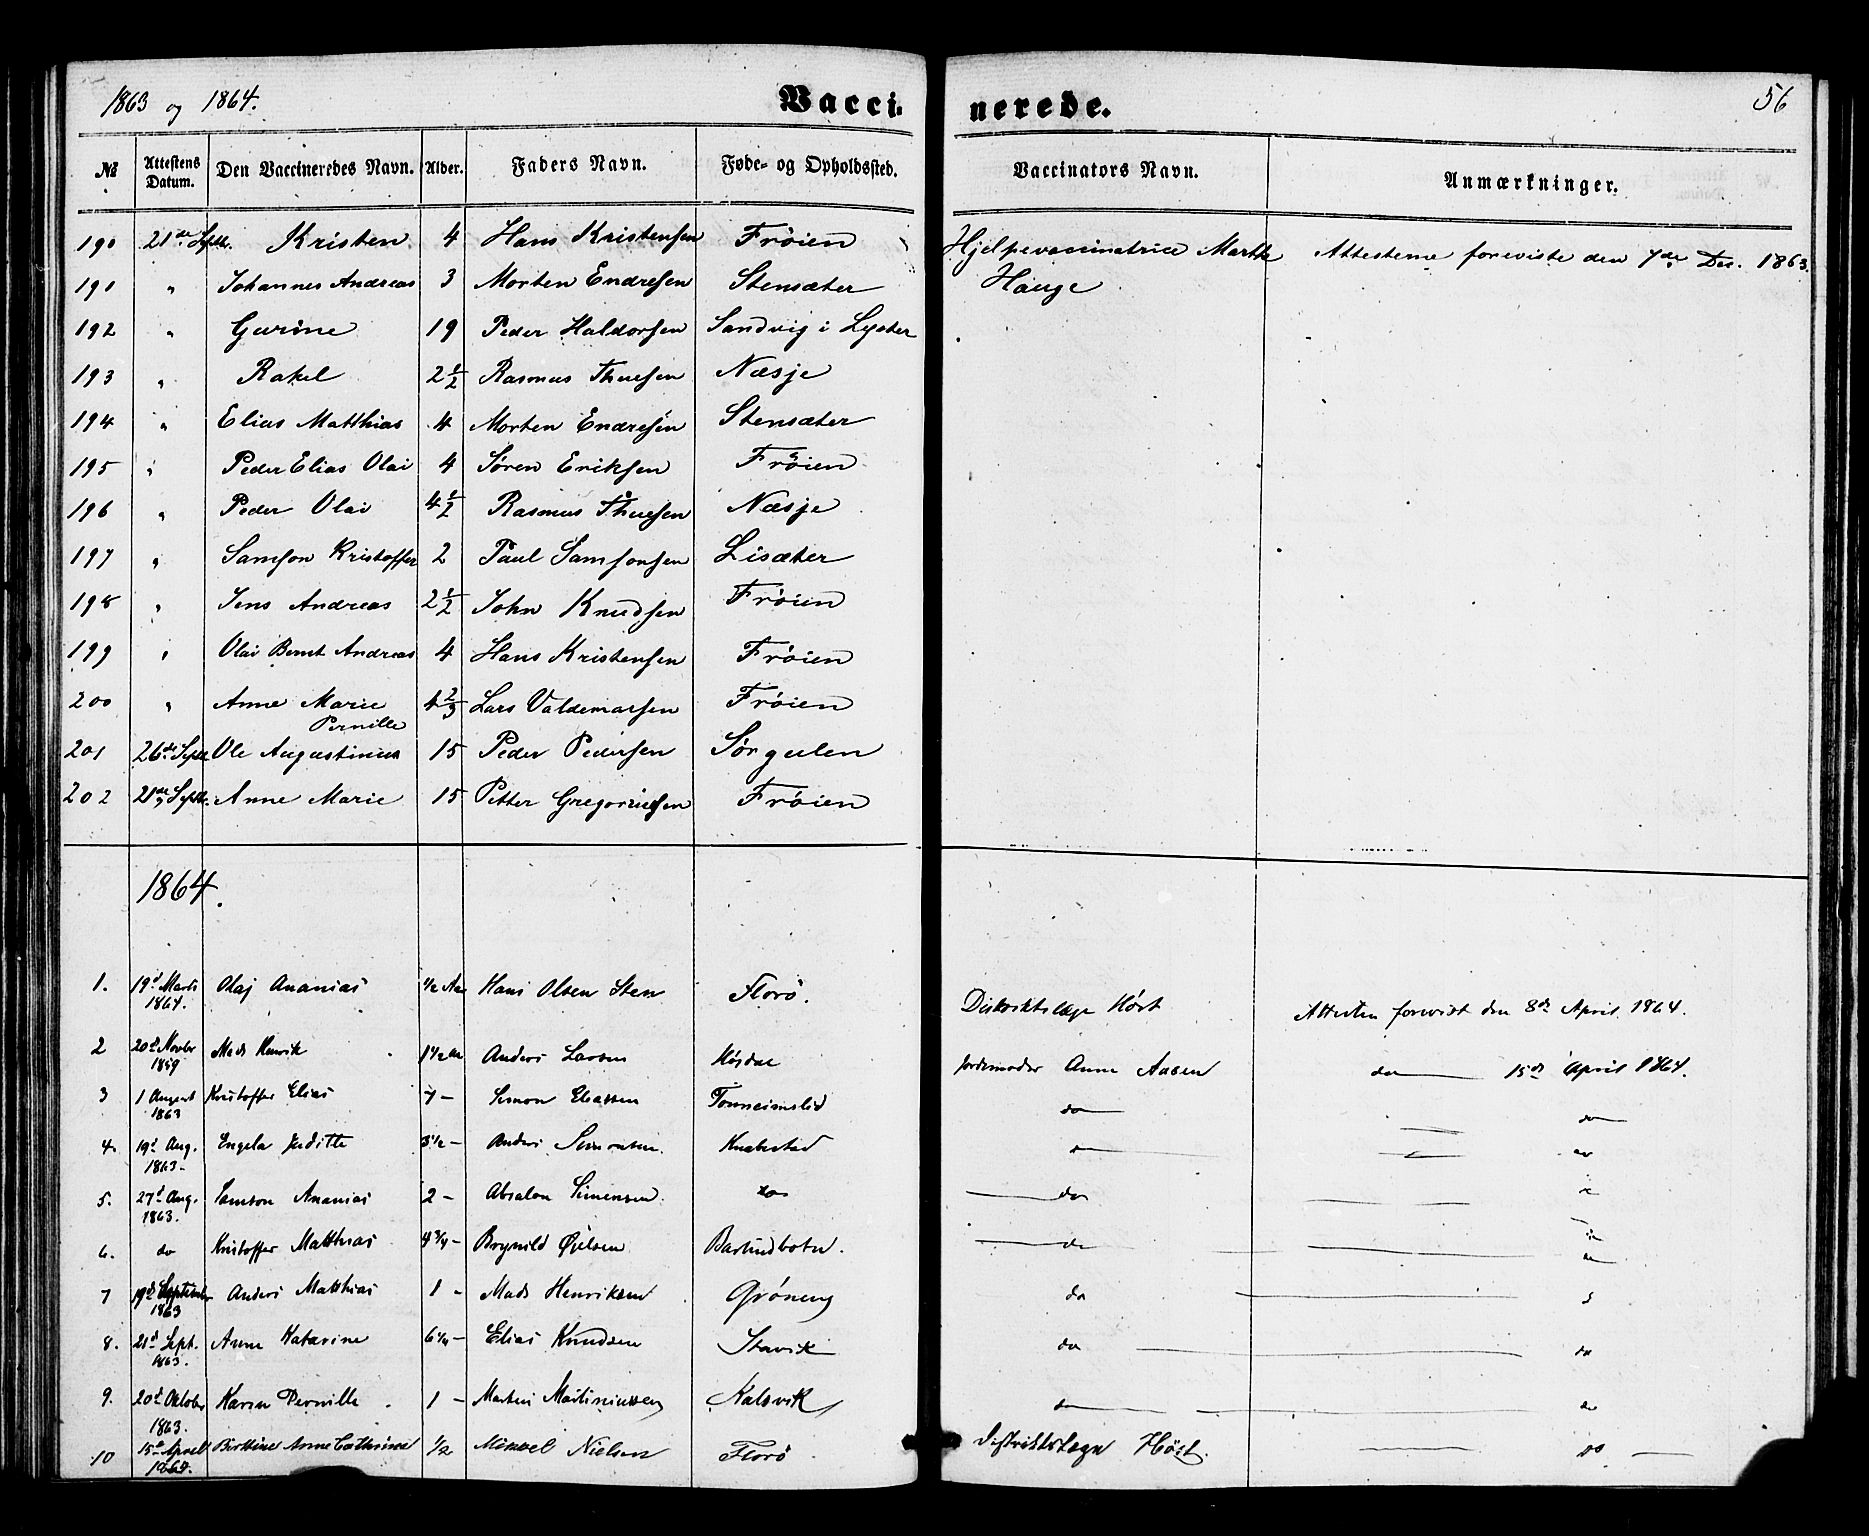 1863 og 1864.
Vacci-
nerede.
56
№ Attestens Datum. Den Vaccineredes Navn. Alder. Faders Navn. Føde- og Opholdssted. Vaccinators Navn. Anmærkninger.
190 21de Septb. Kristen 4 Hans Kristensen Frøien Hjelpevaccinatrice Marthe Attesterne foreviste den 7de Dec. 1863.
191 " Johannes Andreas 3 Morten Endresen Stensæter Hauge
192 " Gurine 19 Peder Haldorsen Sandvig i Lyster
193 " Rakel 2 1/2 Rasmus Thuesen Næsje
194 " Elias Matthias 4 Morten Endresen Stensæter
195 " Peder Elias Olai 4 Søren Eriksen Frøien
196 " Peder Olai 4 1/2 Rasmus Thuesen Næsje
197 " Samson Kristoffer 2 Paul Samsonsen Lisæter
198 " Jens Andreas 2 1/2 John Knudsen Frøien
199 " Olai Bernt Andreas 4 Hans Kristensen Frøien
200 " Anne Marie 4 2/3 Lars Valdemarsen Frøien
Pernille
201 26de Septb Ole Augustinus 15 Peder Pedersen Sørgulen
202 21de Septb. Anne Marie 15 Petter Gregoriusen Frøien
1864.
1. 19d Marts Olaj Ananias 1/2 Aar Hans Olsen Sten Florø. Distriktslæge Høst Attesten forevist den 8de April 1864.
1864.
2 20d Novbr Mads Henrik 1 1/2 Aar Anders Larsen Jordemoder Anne Aasen do 15de April 1864.
1859
3 1 August Kristoffer Elias 7 - Simon Eliassen Tonheimslid do do
1863
4. 19d Aug. Engela Juditte 3 1/2 - Anders Simonsen Knabestad do do
1863-
5. 27d Aug. Samson Ananias 2 - Absalon Simensen do do
1863.
6. do Kristoffer Matthias 4 3/4 - Brynild Barlindbotn. do
7 19d September Anders Matthias 1 - Mads Henriksen Grøneng do
1863
8. 21d Sept. Anne Katarine 6 1/4 - Elias Knudsen Stavik do do
1863.
9. 20d Oktober Karen Pernille 1 - Martin Martiniussen Kalsvik do do
1863.
10 15d April Birthine Anne Cathrine 1/2 Mikael Nielsen Florø Distriktslæge Høst. do
1864.